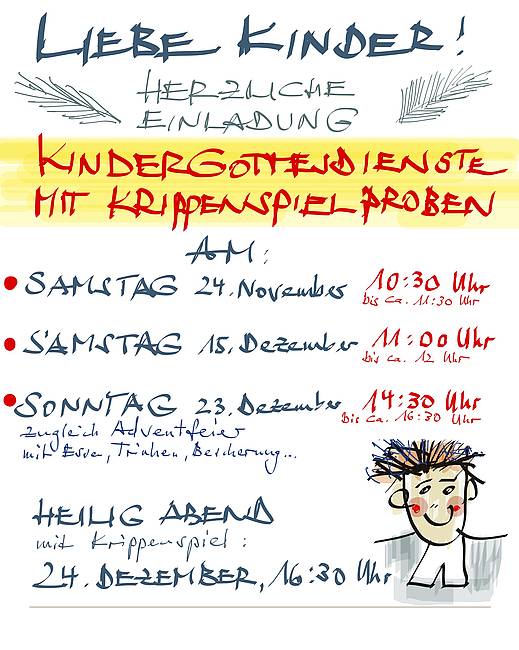 LIEBE KINDER!
HERZLICHE
EINLADUNG
KINDERGOTTESDIENSTE
MIT KRIPPENSPIELPROBEN
AM:
SAMSTAG 24. November 10:30 Uhr
bis ca. 11:30 Uhr
SAMSTAG 15. Dezember 11:00 Uhr
bis ca. 12 Uhr
SONNTAG 23. Dezember 14:30 Uhr
bis ca. 16:30 Uhr
zugleich Adventfeier
mit Essen, Trinken, Bescherung...
HEILIG ABEND
mit Krippenspiel:
24. DEZEMBER, 16:30 Uhr